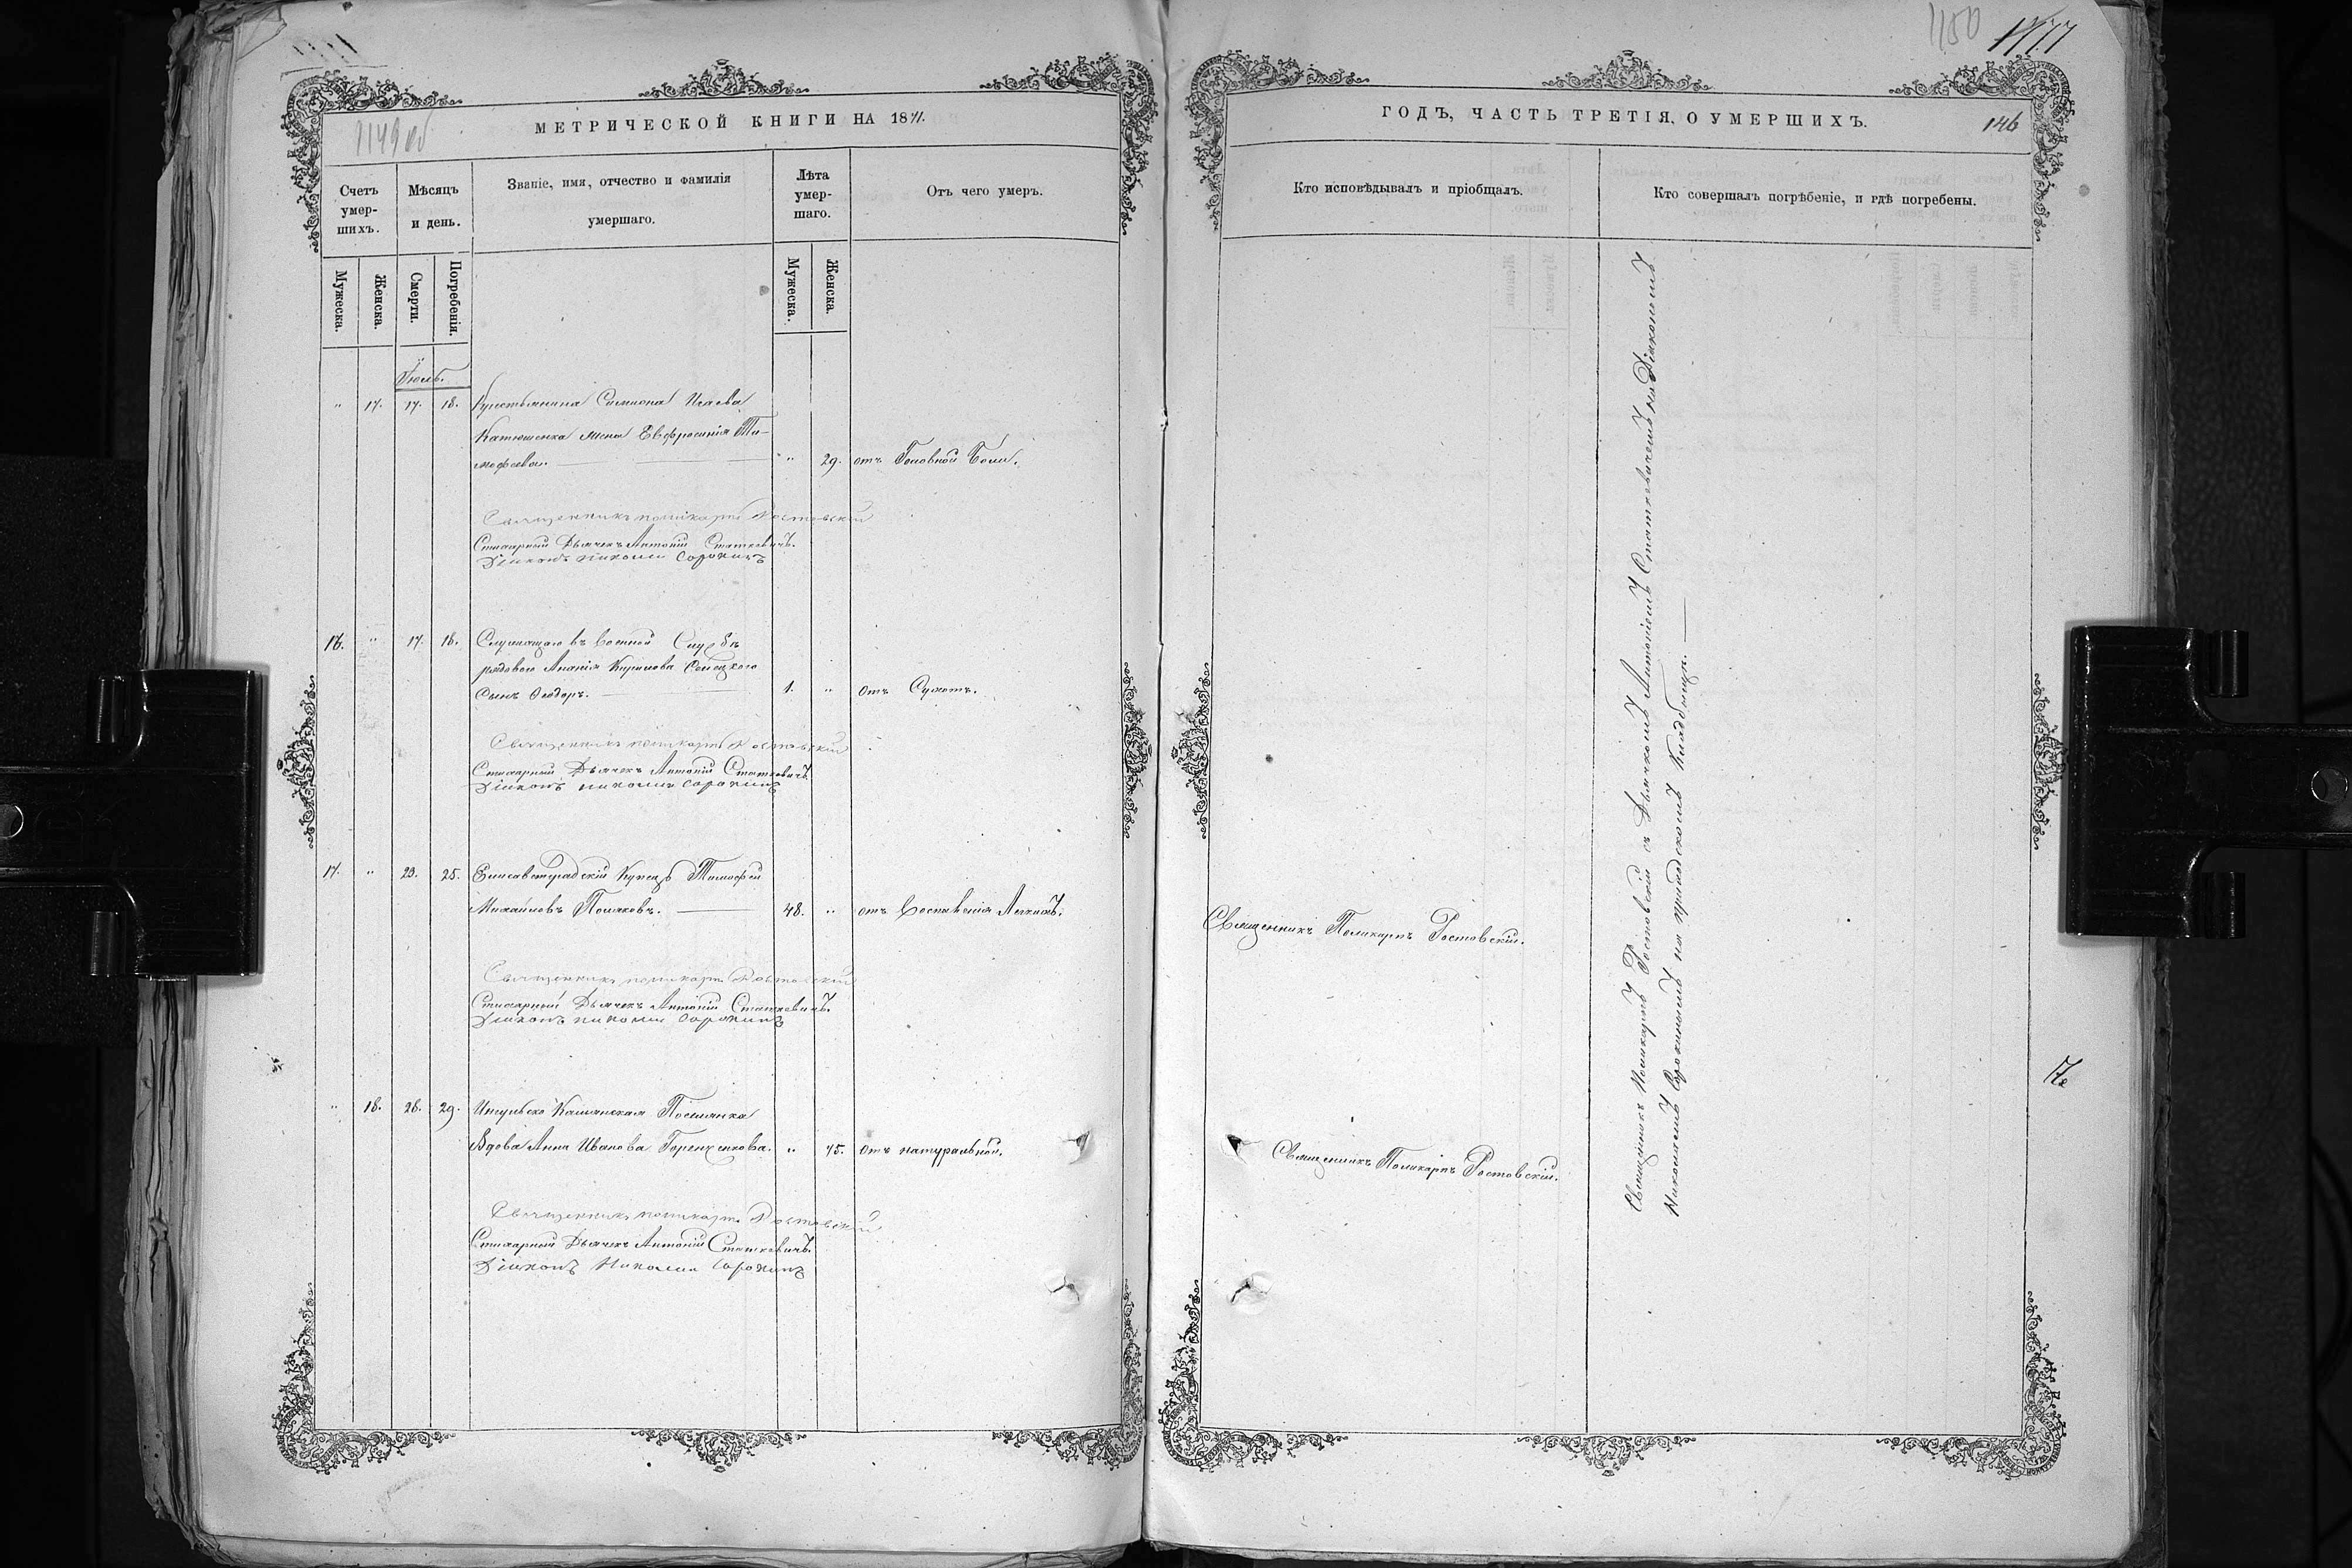 1149 об
МЕТРИЧЕСКОЙ КНИГИ НА 1871.
Счетъ умер-шихъ.
Мѣсяцъ и день.
Званіе, имя, отчество и фамилія умершаго.
Лѣта умер-шаго.
Отъ чего умеръ.
Мужеска.
Женска.
Смерти.
Погребенія.
Мужеска.
Женска.
Іюль.
" 17. 17. 18. Крестьянина Симиона Исаева
Катюшенка жена Евфросинія Ти-
мофеева. " 29. отъ Головной Боли.
Священникъ Поликарпъ Ростовскій
Стихарный Дьячекъ Антоній Статкевичъ.
Діаконъ Николай Сорокинъ
16. " 17. 18. Служащаго въ военной Службѣ
рядового Ананія Кирилова
Сынъ Ѳеодоръ. 1. " отъ Сухотъ.
Священникъ Поликарпъ Ростовскій
Стихарный Дьячекъ Антоній Статкевичъ.
Діаконъ Николай Сорокинъ
17. " 23. 25. Елисаветградскій Купецъ Тимофей
Михайловъ Поляковъ. 48. " отъ Воспаленія Легкихъ.
Священникъ Поликарпъ Ростовскій
Стихарный Дьячекъ Антоній Статкевичъ.
Діаконъ Николай Сорокинъ
" 18. 28. 29. Ингульско Каменская Поселянка
Вдова Анна Иванова " 75. отъ натуральной.
Священникъ Поликарпъ Ростовскій
Стихарный Дьячекъ Антоній Статкевичъ.
Діаконъ Николай Сорокинъ
1150
ГОДЪ, ЧАСТЬ ТРЕТІЯ, О УМЕРШИХЪ.
146
Кто исповѣдывалъ и пріобщалъ.
Кто совершалъ погрѣбеніе, и гдѣ погребены.
Священникъ Поликарпъ Ростовскій.
Священникъ Поликарпъ Ростовскій.
Священникъ Поликарпъ Ростовскій съ Дьячкомъ Антоніемъ Статкевичемъ и Діакономъ
Николаемъ Сорокинымъ на приходскомъ Кладбищи.